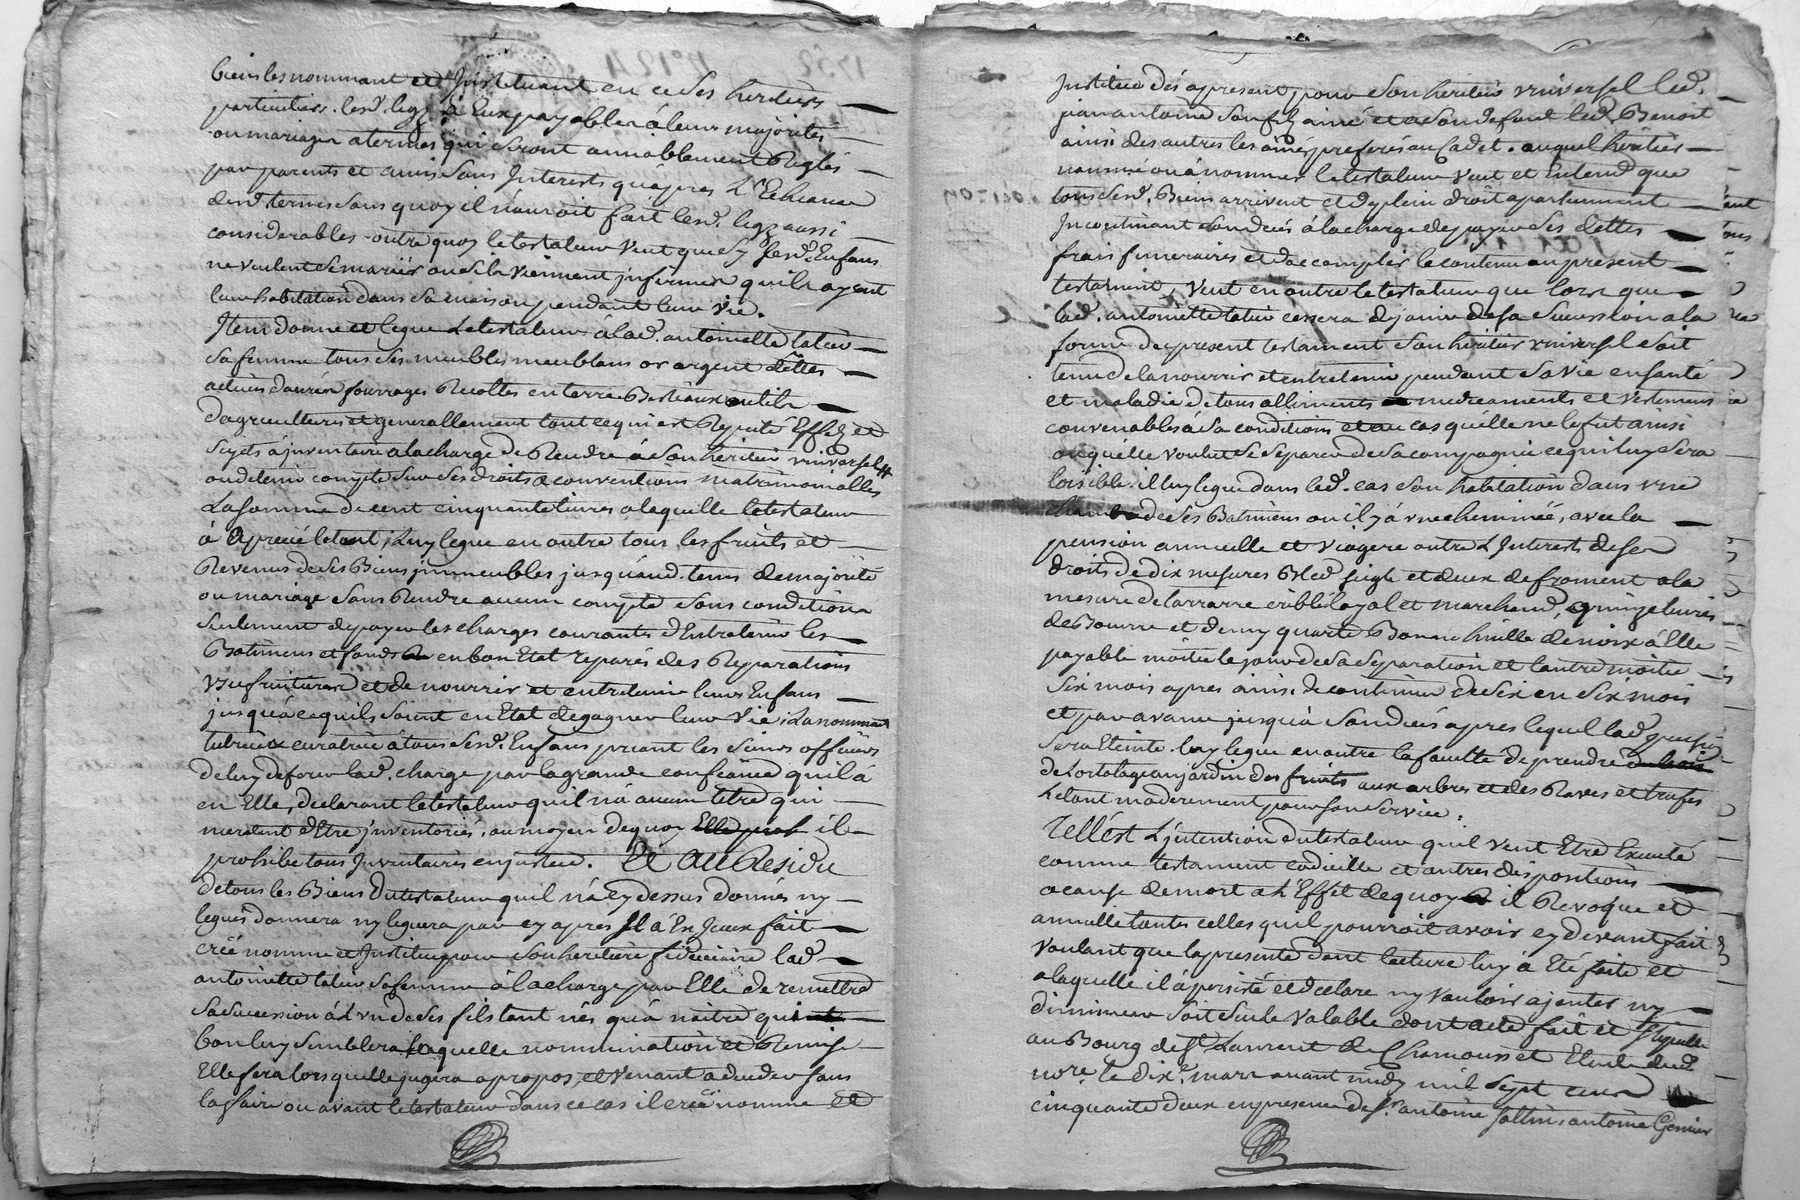 biens les nommant et Instituant en ce ses heritiers
particuliers. lesd. legz à Eux payables à leurs majorités
ou mariages a termes qui seront amiablement Reglés
par parents et amis sans Interests qu'apres L'Echeance
desd. termes sans quoy il n'auroit fait lesd. legz aussi
considerables. outre quoy le testateur Veut que sy sesd. Enfans
ne veulent se mariér ou s'ils viennent jnfirmes qu'ils ayent
leur habitation dans sa maison pendant leur vie.
Item donne et legue Le testateur à lad. antoinette tateu
sa femme tous ses meubles meublans or argent dettes
actives danrées fourrages Recoltes en terre Bestiaux outils
d'agriculture et generallement tout ce qui est Reputé Effets et
sujets à jnventaire a la charge de Rendre à son heritier vniversel
ou de tenir compte sur ses droits & conventions matrimonialles
La somme de cent cinquante livres a laquelle le testateur
à Aprecié le tout, Luy legue en outre tous les fruits et
Revenus de ses Biens jmmeubles jusqu'aud. tems de majorité
ou mariage sans Rendre aucun compte sous condition
seulement de payer les charges courantes d'Entretenir les
Batimens et fonds en bon Etat reparés des Reparations
vsufruitieres et de nourrir et entretenir leurs Enfans
jusqu'à ce qu'ils soient en Etat de gagner leur vie. La nommant
tutrice & curatrice à tous sesd. Enfans priant les sieurs officiers
de luy deferer lad. charge par la grande confiance qu'il à
en Elle, declarant le testateur qu'il n'à aucun titre qui
meritent d'Etre jnventoriés, au moyen de quoy il
prohibe tous Inventaires en justice. Et au Residu
de tous les Biens du testateur qu'il n'à cy dessus donnés ny
legués donnera ny leguera par cy apres Il à En Iceux fait
créé nommé et Institué pour son heritiere fiduciaire lad.
antoinette tateu sa femme à la charge par Elle de remettre
sa succession à L'vn de ses fils tant nés qu'à naitre qui
bon luy semblera laquelle nommination et Remise
Elle fera lors qu'elle jugera a propos, et venant a deceder sans
la faire ou avant le testateur dans ce cas il créé nomme et
Institue dés apresent pour son heritier vniversel led.
jean antoine son fils ainé et a son defaut led. Benoit
ainsi des autres les ainés preferés au Cadet. auquel heritier
nommé ou à nommer le testateur veut et Entend que
tous sesd. Biens arrivent et de plein droit apartiennent
Incontinant son decés à la charge de payer ses dettes
frais funeraires et d'accomplir le contenu au present
testament, Veut en outre le testateur que lors que
lad. antoinette tateu cessera de jouir de sa succession a la
forme du present testament son heritier vniversel soit
tenu de la nourrir et entretenir pendant sa vie en santé
et maladie de tous allimens medicaments et vestemens
convenables à sa condition et au cas qu'elle ne le fut ainsi
ou qu'elle voulut se separer de sa compagnie ce qui luy sera
loisible. il luy legue dans led. cas son habitation dans vne
chambre de ses Batimens ou il y à vne cheminée, avec la
pension annuelle et viagere outre L'Interest de ses
droits de dix mesures Bled seigle et deux de froment a la
mesure de larrarre criblé loyal et marchand, quinze livres
de Beurre et demy quarte Bonne huille de noix à Elle
payable moitié le jour de sa separation et l'autre moitié
six mois apres ainsi de continuer de six en six mois
et par avance jusqu'à son decés apres lequel lad. pension
sera Eteinte. luy legue en outre la faculté de prendre
de L'ortolage au jardin des fruits aux arbres et des Raves et trufes
Le tout moderement pour son service.
Telle est L'jntention du testateur qu'il veut Etre Executé
comme testament codicille et autres dispositions
a cause de mort a L'Effet de quoy il Revoque et
annulle toutes celles qu'il pourroit avoir cy devant fait
voulant que la presente dont lecture luy à Eté faite et
a laquelle il à persisté et declare ny vouloir ajouter ny
diminuer soit seule valable dont acte fait et
au Bourg de St Laurent de Chamousset Etude dud.
nore. le dix. mars avant midy mil sept cens
cinquante deux en presence de Sr. antoine antoine